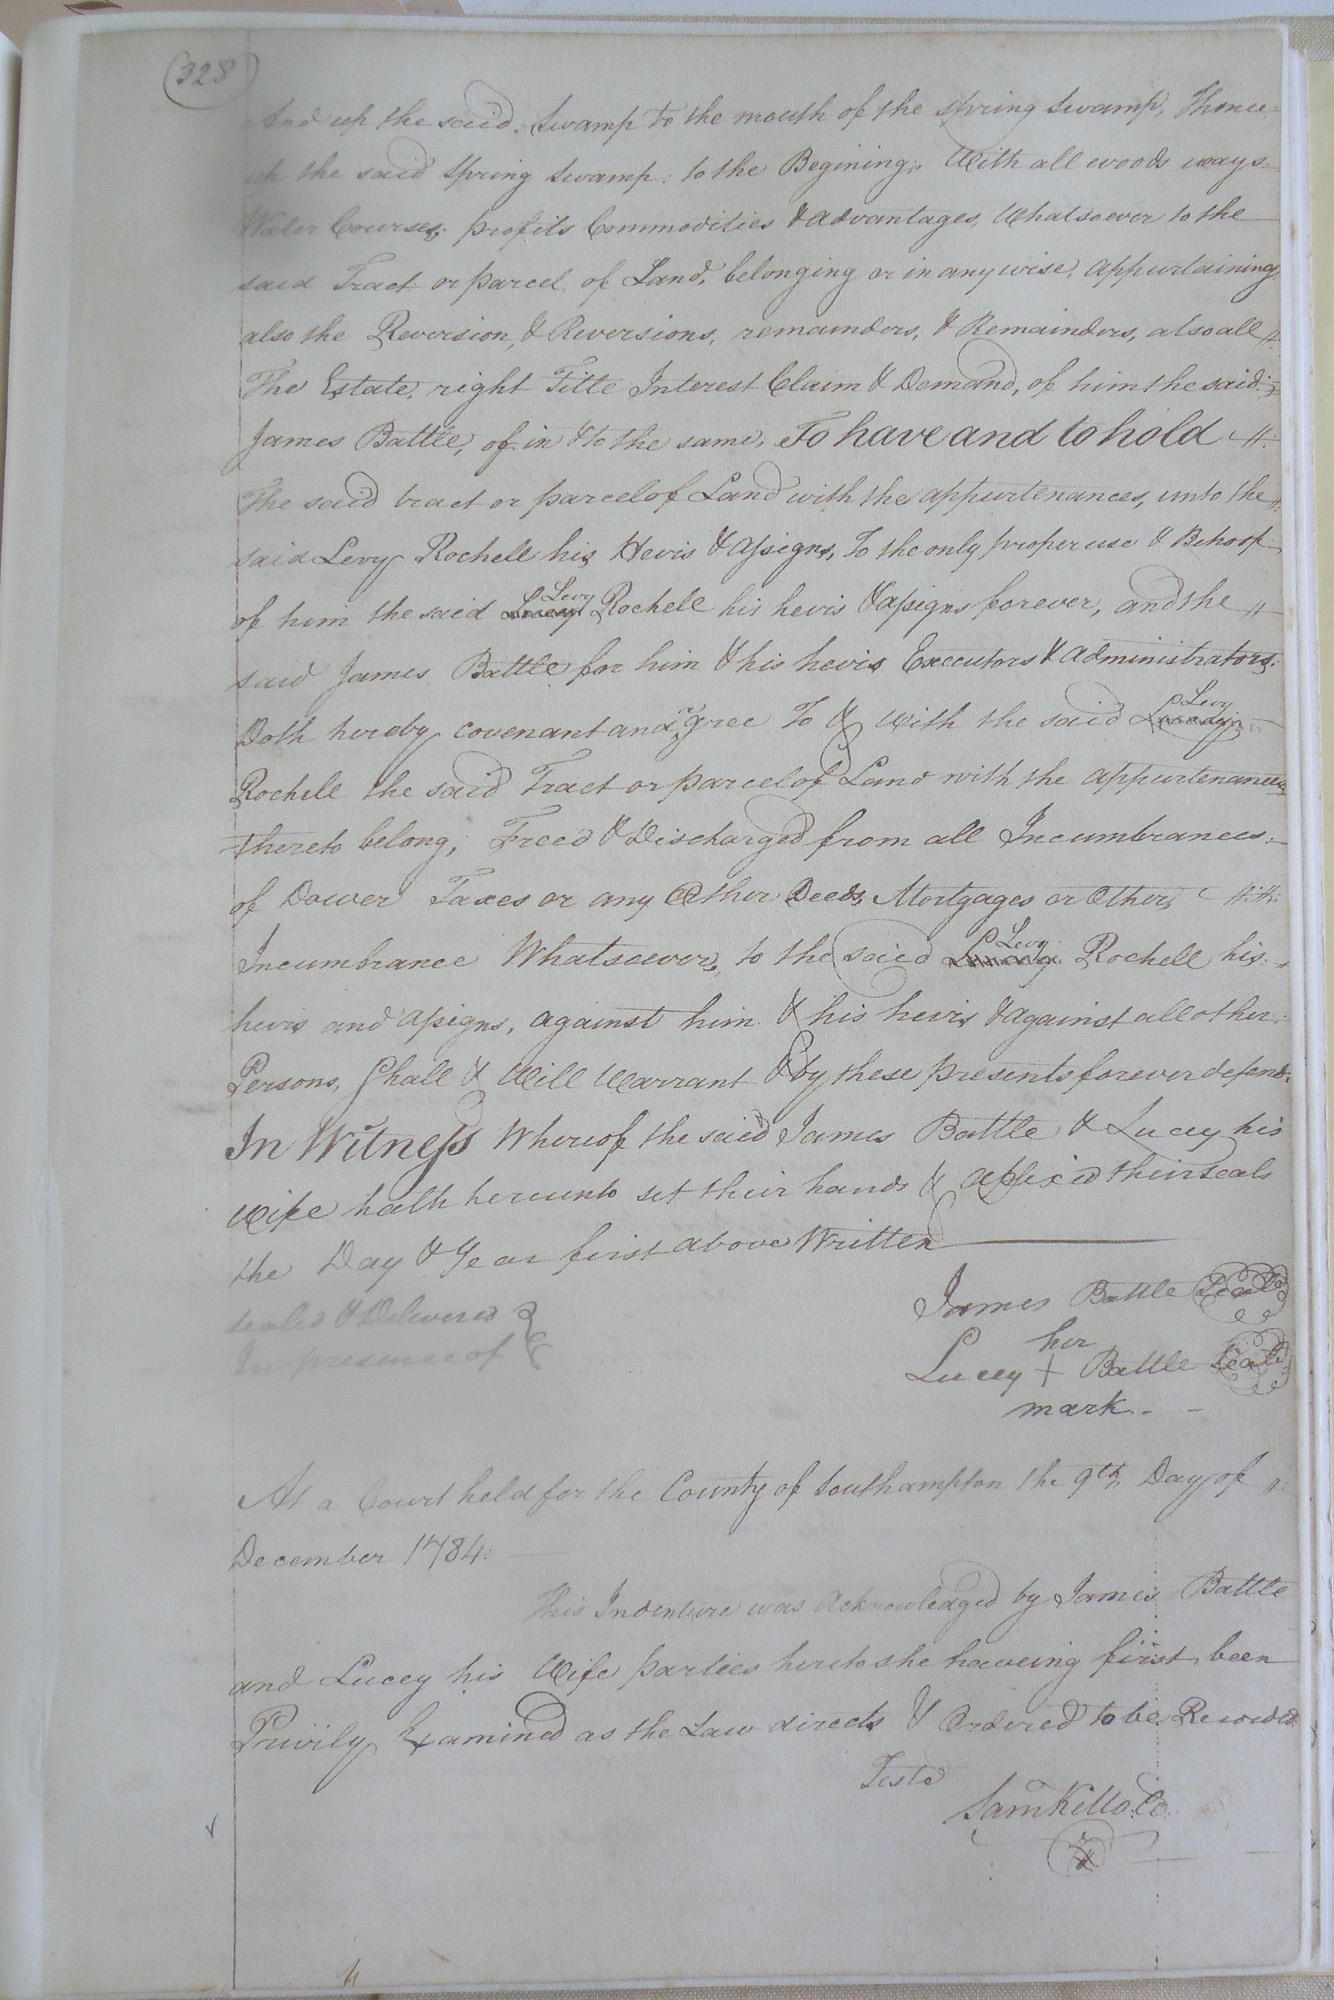 328
And up the said Swamp to the mouth of the Spring Swamp, Thence
up the said Spring Swamp to the Begining. With all woods ways
Water Courses, profits Commodities & advantages, Whatsoever to the
said Tract or parcel of Land, belonging or in any wise, appurtaining
also the Reversion, & Reversions, remainders, & Remainders, also all
The Estate, right Title Interest Claim & Demand, of him the said
James Battle, of in & to the same, To have and to hold
The said tract or parcel of Land with the appurtenances, unto the
said Levy Rochell his Heris & Assigns, To the only proper use & Behoof
of him the said Levy Rochell his heris & assigns forever, and the
said James Battle for him & his heris Executors & administrators
Doth hereby covenant and agree To & with the said Levy
Rochell the said Tract or parcel of Land with the appurtenances
thereto belong, Freed & Discharged from all Incumbrances
of Dower Taxes or any Other Deeds, Mortgages or Other
Incumbrance Whatsoever, to the said Levy Rochell his
heris and assigns, against him & his heris & against all other
Persons, Shall & Will Warrant & by these presents forever defend.
In Witness Whereof the said James Battle & Lucey his
wife hath hereunto set their hands & affix'd their seals
the Day & Year first above Written
sealed & Delivered
In presence of
James Battle Seal
her
Lucey + Battle Seal
mark
At a Court held for the County of Southampton the 9th Day of
December 1784
This Indenture was Acknowledged by James Battle
and Lucey his Wife parties hereto she haveing first been
Privily Examined as the Law directs & Ordered to be Recorded
Teste
Sam Kello. Co.